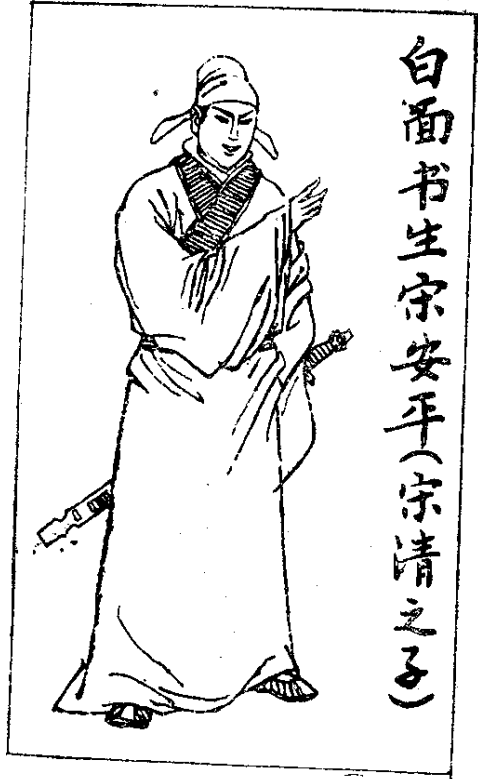 白面书生宋安平(宋清之子)